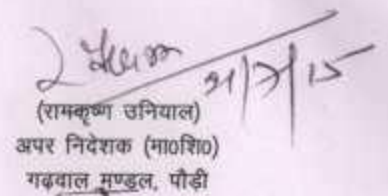 (रामकृष्ण उनियाल)
अपर निदेशक (मा०शि०)
गढ़वाल मण्डल, पौड़ी